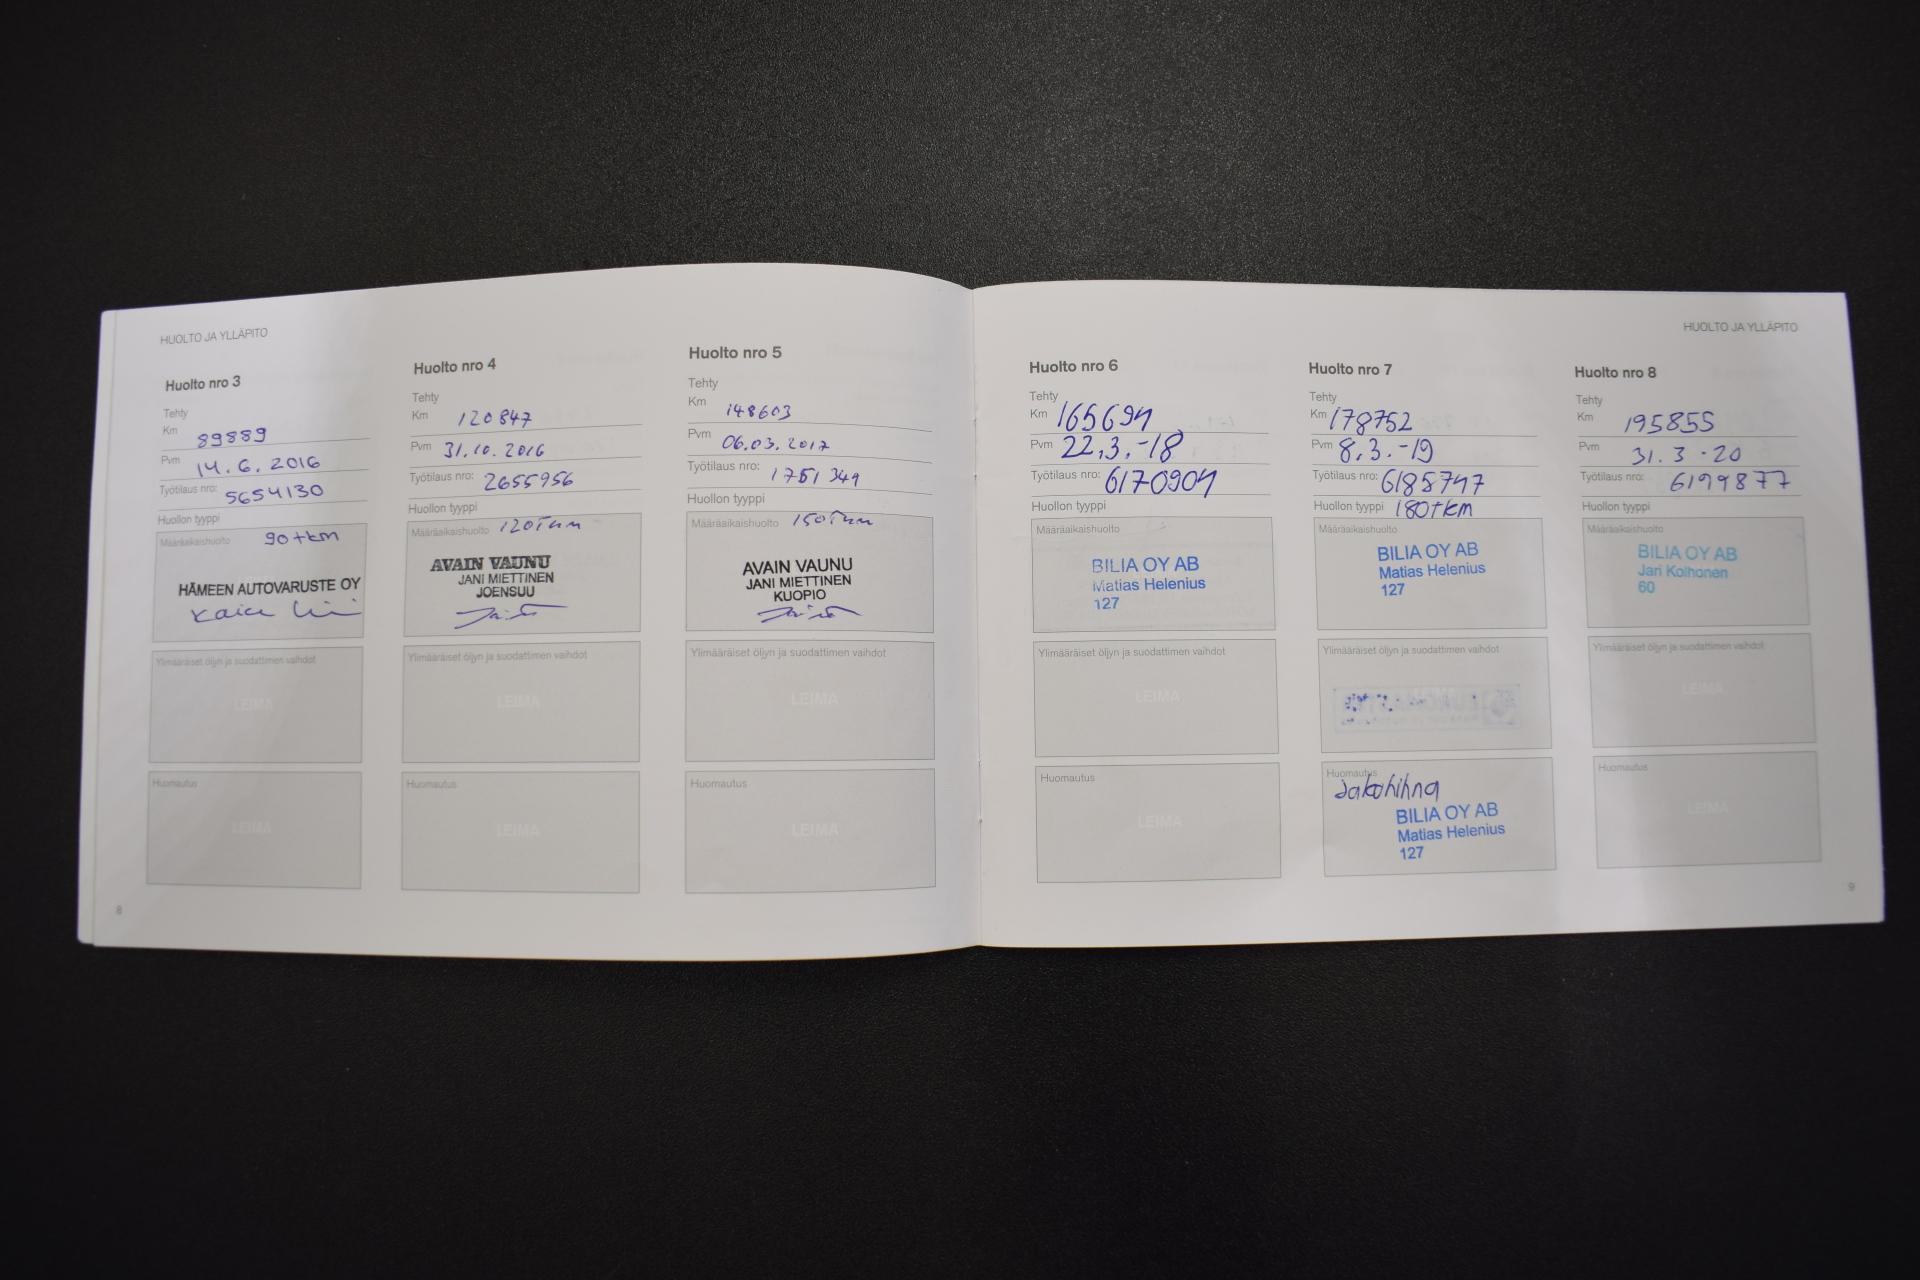 HUOLTO JA YLLÄPITO
Huolto nro 3
Tehty
Km 89889
Pvm 14.6.2016
Työtilaus nro: 5654130
Huollon tyyppi
Määräaikaishuolto 90tkm
HÄMEEN AUTOVARUSTE OY
Ylimääräiset öljyn ja suodattimen vaihdot
LEIMA
Huomautus
LEIMA
8
Huolto nro 4
Tehty
Km 120847
Pvm 31.10.2016
Työtilaus nro: 2655956
Huollon tyyppi
Määräaikaishuolto
AVAIN VAUNU
JANI MIETTINEN
JOENSUU
Ylimääräiset öljyn ja suodattimen vaihdot
LEIMA
Huomautus
LEIMA
Huolto nro 5
Tehty
Km 148603
Pvm 06.03.2017
Työtilaus nro: 1751349
Huollon tyyppi
Määräaikaishuolto
AVAIN VAUNU
JANI MIETTINEN
KUOPIO
Ylimääräiset öljyn ja suodattimen vaihdot
LEIMA
Huomautus
LEIMA
HUOLTO JA YLLÄPITO
Huolto nro 6
Tehty
Km 165694
Pvm 22.3.-18
Työtilaus nro: 6170904
Huollon tyyppi
Määräaikaishuolto
BILIA OY AB
Matias Helenius
127
Ylimääräiset öljyn ja suodattimen vaihdot
LEIMA
Huomautus
LEIMA
Huolto nro 7
Tehty
Km 178752
Pvm 8.3.-19
Työtilaus nro: 6185747
Huollon tyyppi 180tkm
Määräaikaishuolto
BILIA OY AB
Matias Helenius
127
Ylimääräiset öljyn ja suodattimen vaihdot
Huomautus
Jakohihna
BILIA OY AB
Matias Helenius
127
Huolto nro 8
Tehty
Km 195855
Pvm 31.3.20
Työtilaus nro: 6199877
Huollon tyyppi
Määräaikaishuolto
BILIA OY AB
Jari Kolhonen
60
Ylimääräiset öljyn ja suodattimen vaihdot
LEIMA
Huomautus
LEIMA
9